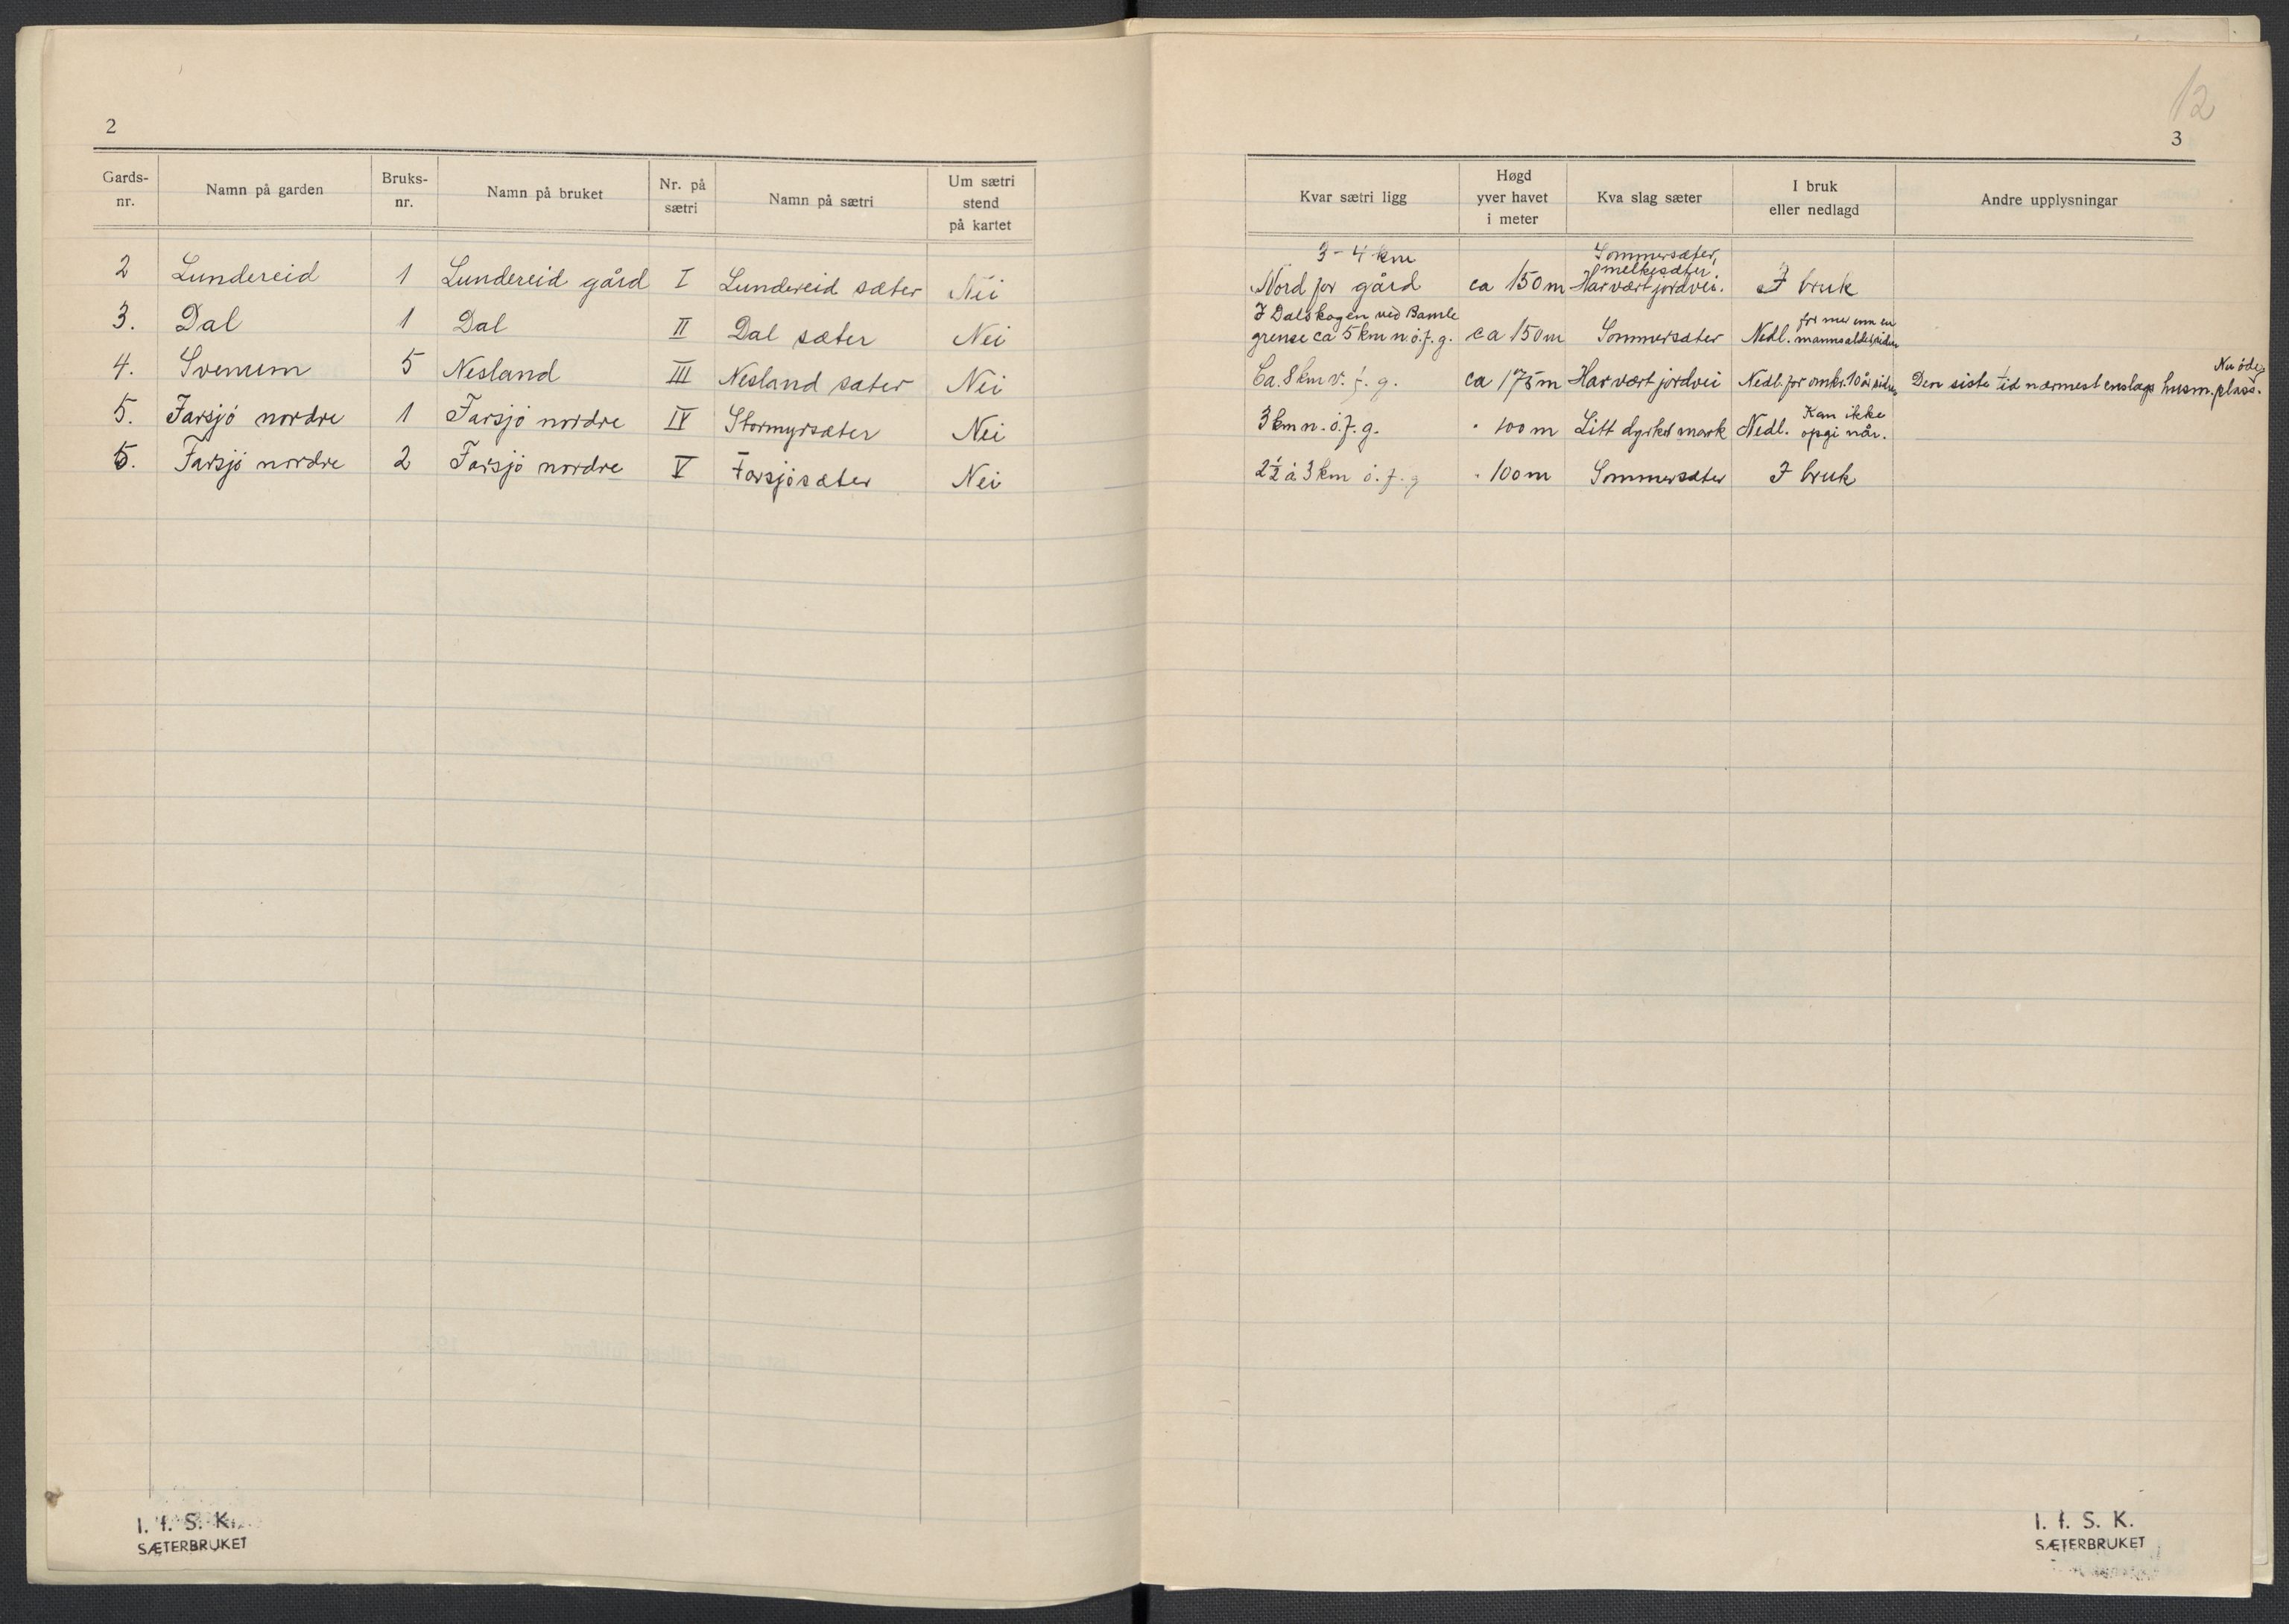 2
Gards-nr. Namn på garden Bruks-nr. Namn på bruket Nr. på sætri Namn på sætri Um sætri stend på kartet
2 Lundereid 1 Lundereid gård I Lundereid sæter Nei
3. Dal 1 Dal II Dal sæter Nei
4. Svenum 5 Nesland III Nesland sæter Nei
5. Farsjø nordre 1 Farsjø nordre IV Stormyrsæter Nei
5. Farsjø nordre 2 Farsjø nordre V Farsjøsæter Nei
I. f. S. K.
SÆTERBRUKET
12
3
Kvar sætri ligg Høgd yver havet i meter Kva slag sæter I bruk eller nedlagd Andre upplysningar
3-4 km Sommersæter, melkesæter.
Nord for gård ca 150 m Har vært jordvei. I bruk
I Dalskogen ved Bamle for mer enn en
grense ca 5 km n.ö.f.g. ca 150 m Sommersæter Nedl. mannsalder siden
Ca. 8 km v. f. g. ca 175 m Har vært jordvei Nedl. for omkr. 10 år siden Den siste tid nærmest enslags husm.plass. Nu öde,
3 km n.ö.f.g. " 100 m Litt dyrket mark Nedl. Kan ikke opgi når.
2½ à 3 km ö.f.g " 100 m Sommersæter I bruk
I. f. S. K.
SÆTERBRUKET